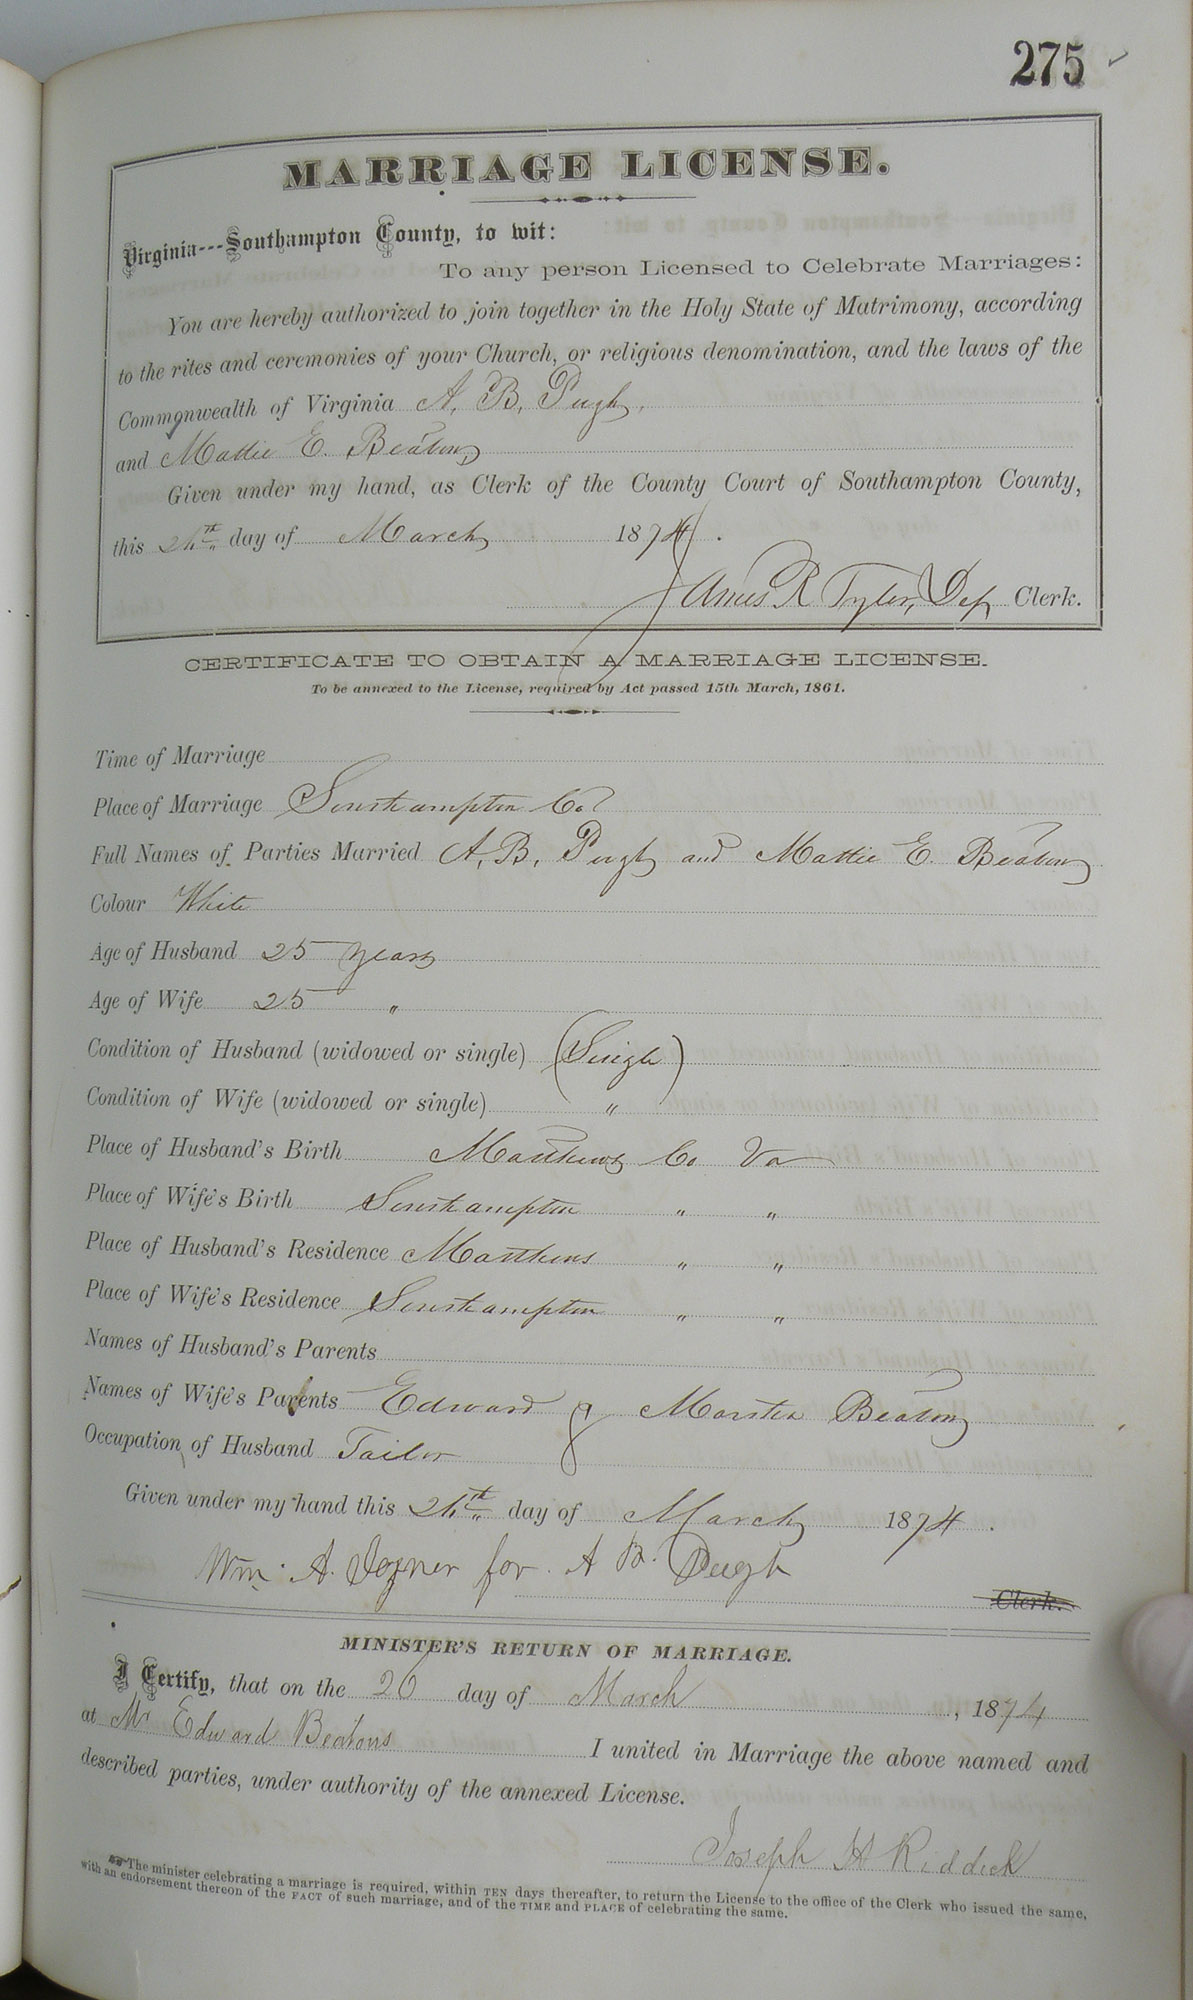 275
MARRIAGE LICENSE.
Virginia---Southampton County, to wit:
To any person Licensed to Celebrate Marriages:
You are hereby authorized to join together in the Holy State of Matrimony, according
to the rites and ceremonies of your Church, or religious denomination, and the laws of the
Commonwealth of Virginia A. B. Pugh,
and Mattie E. Beaton
Given under my hand, as Clerk of the County Court of Southampton County,
this 24th day of March 1874.
James R Tyler, Dep Clerk.
CERTIFICATE TO OBTAIN A MARRIAGE LICENSE.
To be annexed to the License, required by Act passed 15th March, 1861.
Time of Marriage
Place of Marriage Southampton Co
Full Names of Parties Married A. B. Pugh and Mattie E. Beaton
Colour White
Age of Husband 25 years
Age of Wife 25 "
Condition of Husband (widowed or single) (Single)
Condition of Wife (widowed or single) "
Place of Husband's Birth Matthews Co Va
Place of Wife's Birth Southampton " "
Place of Husband's Residence Matthews " "
Place of Wife's Residence Southampton " "
Names of Husband's Parents
Names of Wife's Parents Edward & Beaton
Occupation of Husband Tailor
Given under my hand this 24th day of March 1874.
Wm. A. Joyner for A B. Pugh
Clerk.
MINISTER'S RETURN OF MARRIAGE.
I Certify, that on the 26 day of March, 1874
at Mr Edward Beatons I united in Marriage the above named and
described parties, under authority of the annexed License.
Joseph H Riddick
The minister celebrating a marriage is required, within TEN days thereafter, to return the License to the office of the Clerk who issued the same,
with an endorsement thereon of the FACT of such marriage, and of the TIME and PLACE of celebrating the same.